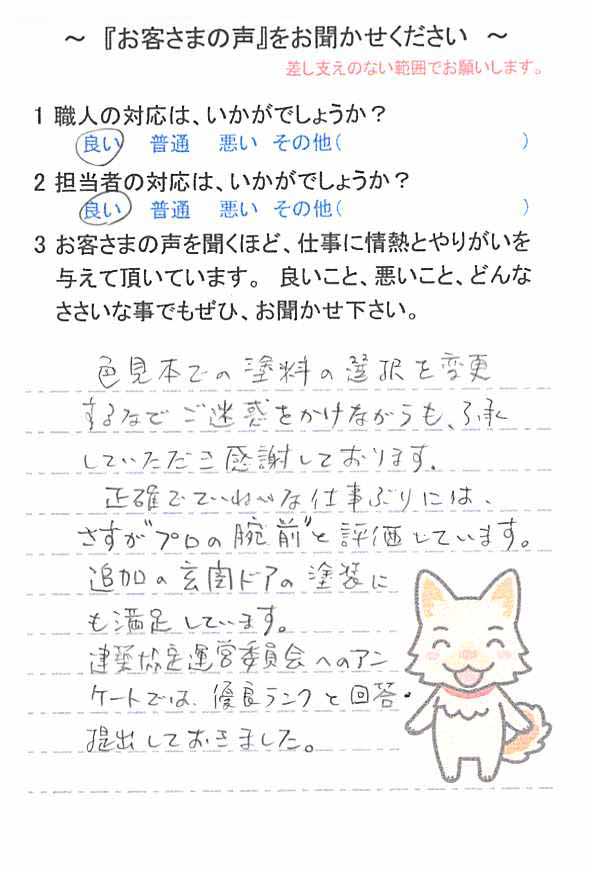 ～ 『お客さまの声』をお聞かせください ～
差し支えのない範囲でお願いします。
1 職人の対応は、いかがでしょうか？
良い 普通 悪い その他( )
2 担当者の対応は、いかがでしょうか？
良い 普通 悪い その他( )
3 お客さまの声を聞くほど、仕事に情熱とやりがいを
与えて頂いています。 良いこと、悪いこと、どんな
ささいな事でもぜひ、お聞かせ下さい。
色見本での塗料の選択を変更
するなどご迷惑をかけながらも、了承
していただき感謝しております。
正確でていねいな仕事ぶりには、
さすが"プロの腕前"と評価しています。
追加の玄関ドアの塗装に
も満足しています。
建築協定運営委員会へのアン
ケートでは、優良ランクと回答・
提出しておきました。